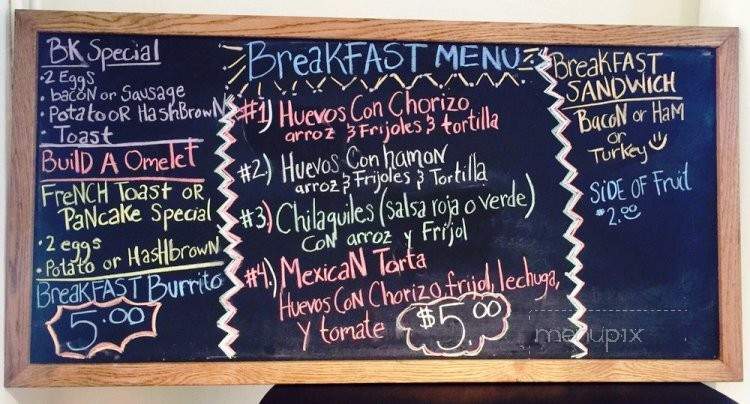 BK Special
• 2 Eggs
• bacon or Sausage
• Potato OR HashBrowN
• Toast
BuilD A Omelet
FreNCH Toast OR
PaNcake Special
• 2 eggs
• Potato or HasHbrowN
BreaKFAST Burrito
5.00
BreaKFAST MENU
#1) Huevos Con Chorizo
arroz & Frijoles & tortilla
#2) Huevos Con hamoN
arroz & Frijoles & Tortilla
#3) Chilaquiles (salsa roja o verde)
CoN arroz y Frijol
#4.) MexicaN Torta
Huevos CoN Chorizo, frijol, lechuga,
y tomate
$5.00
BreaKFAST
SANDWICH
BacoN or HaM
or
Turkey
SiDE OF Fruit
$2.00
menupix